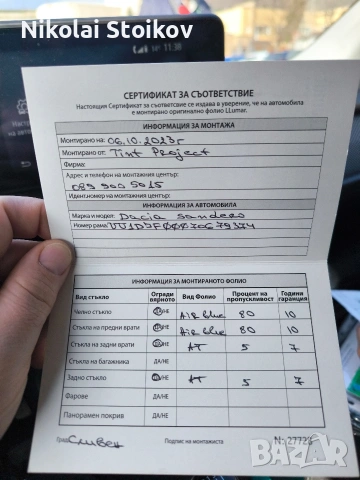 Nikolai Stoikov
11:38
СЕРТИФИКАТ ЗА СЪОТВЕТСТВИЕ
Настоящия Сертификат за съответсвие се издава в уверение, че на автомобила
е монтирано оригинално фолио LLumar.
ИНФОРМАЦИЯ ЗА МОНТАЖА
Монтирано на: 06.10.2023г
Монтирано от: Tint Project
Фирма:
Адрес и телефон на монтажния център:
089 900 5015
Идент.номер на монтажния център:
ИНФОРМАЦИЯ ЗА АВТОМОБИЛА
Марка и модел: Dacia Sandero
Номер рама:
ИНФОРМАЦИЯ ЗА МОНТИРАНОТО ФОЛИО
Вид стъкло Огради вярното Вид Фолио Процент на пропускливост Години гаранция
Челно стъкло ДА/НЕ AIR Blue 80 10
Стъкла на предни врати ДА/НЕ AIR Blue 80 10
Стъкла на задни врати ДА/НЕ AT 5 7
Стъкла на багажника ДА/НЕ
Задно стъкло ДА/НЕ AT 5 7
Фарове ДА/НЕ
Панорамен покрив ДА/НЕ
Град Сливен Подпис на монтажиста N: 27725
bazar